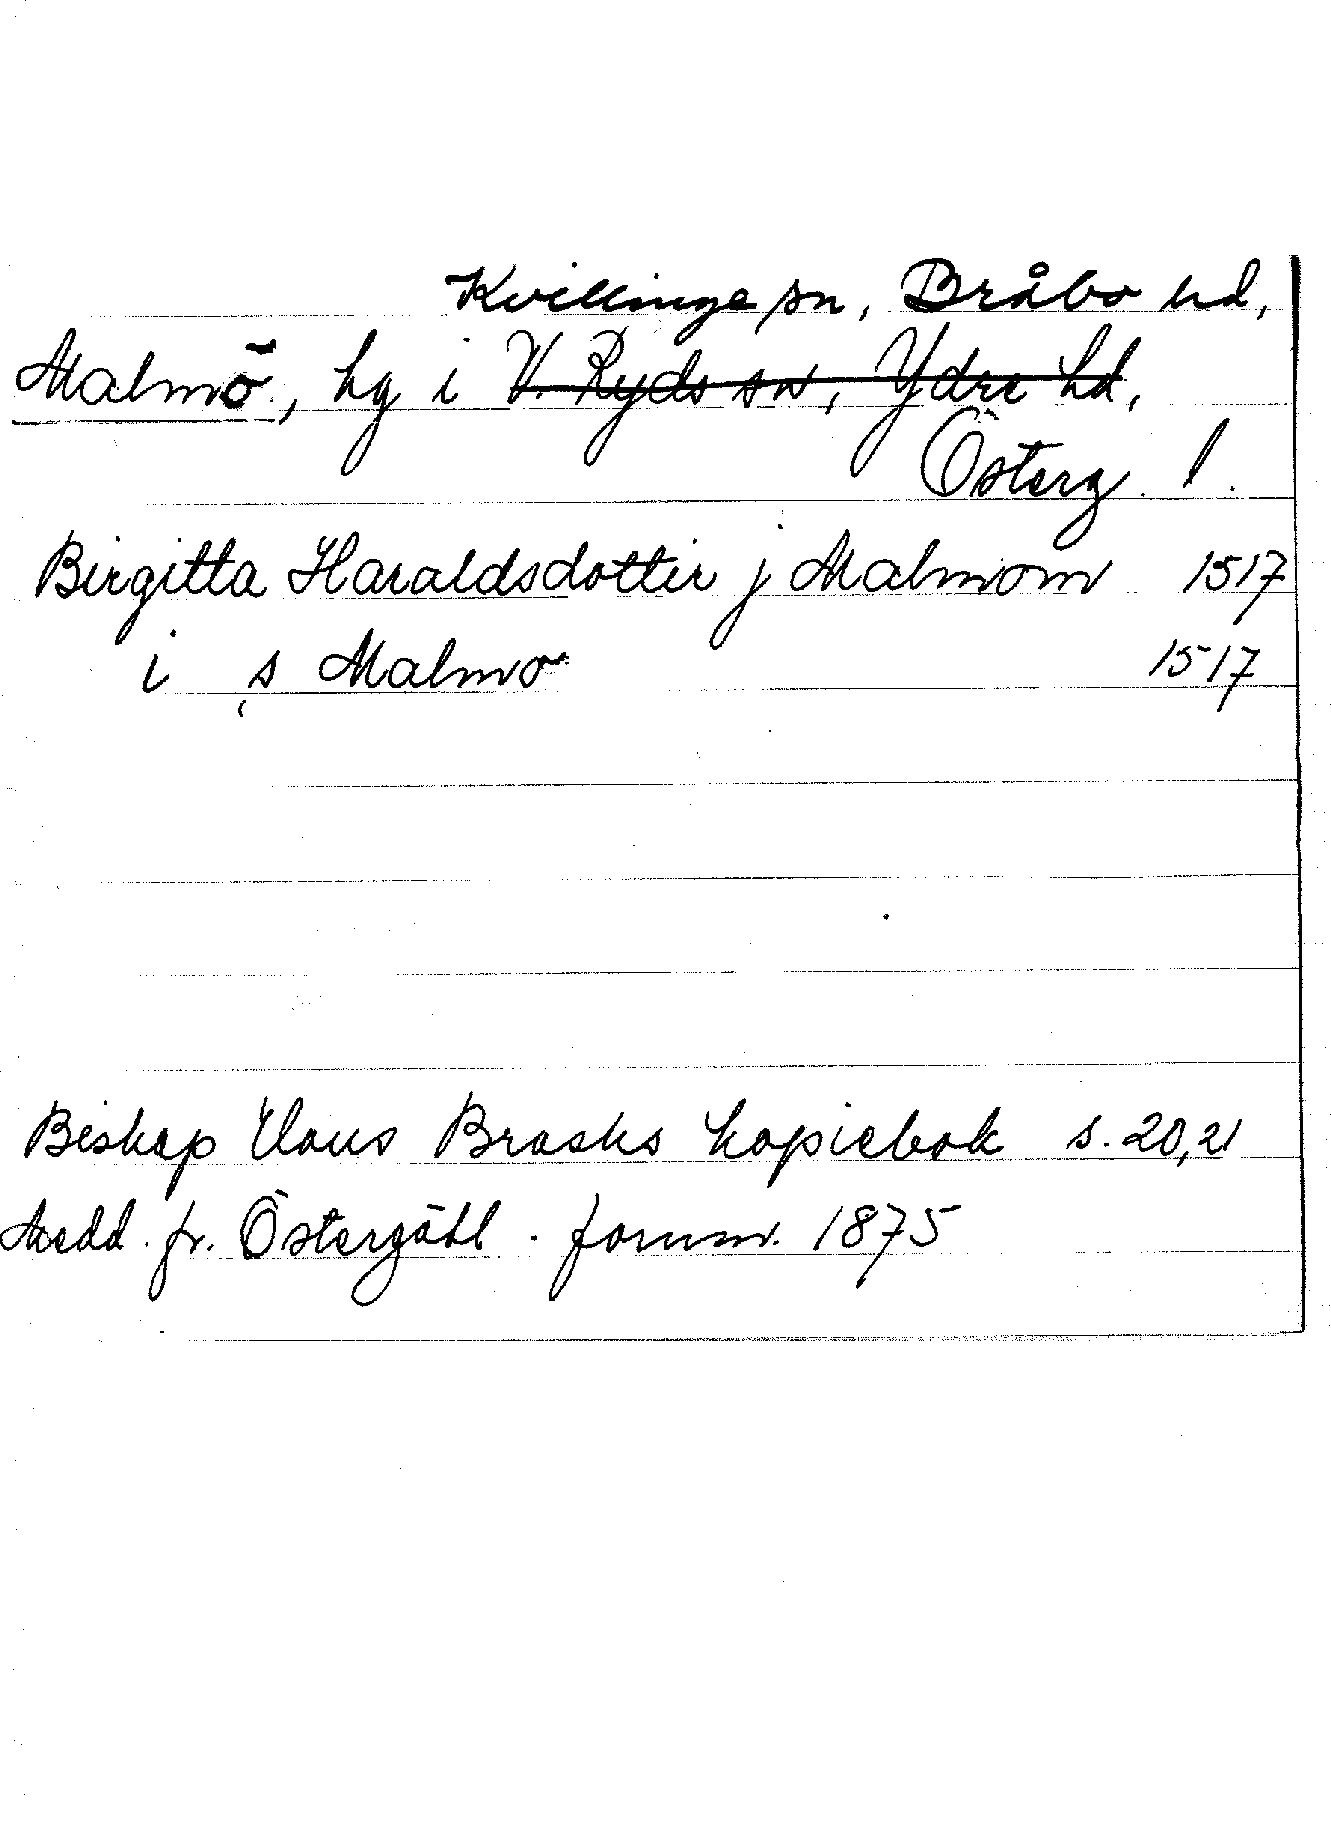 Kvillinge sn, Bråbo hd,
Malmö, hg i V. Ryds sn, Ydre hd,
Österg. l.
Birgitta Haraldsdotter j Malmom 1517
i s Malmo 1517
Biskop Hans Brasks kopiebok s. 20,21
Medd. fr. Östergötl. fornm. 1875